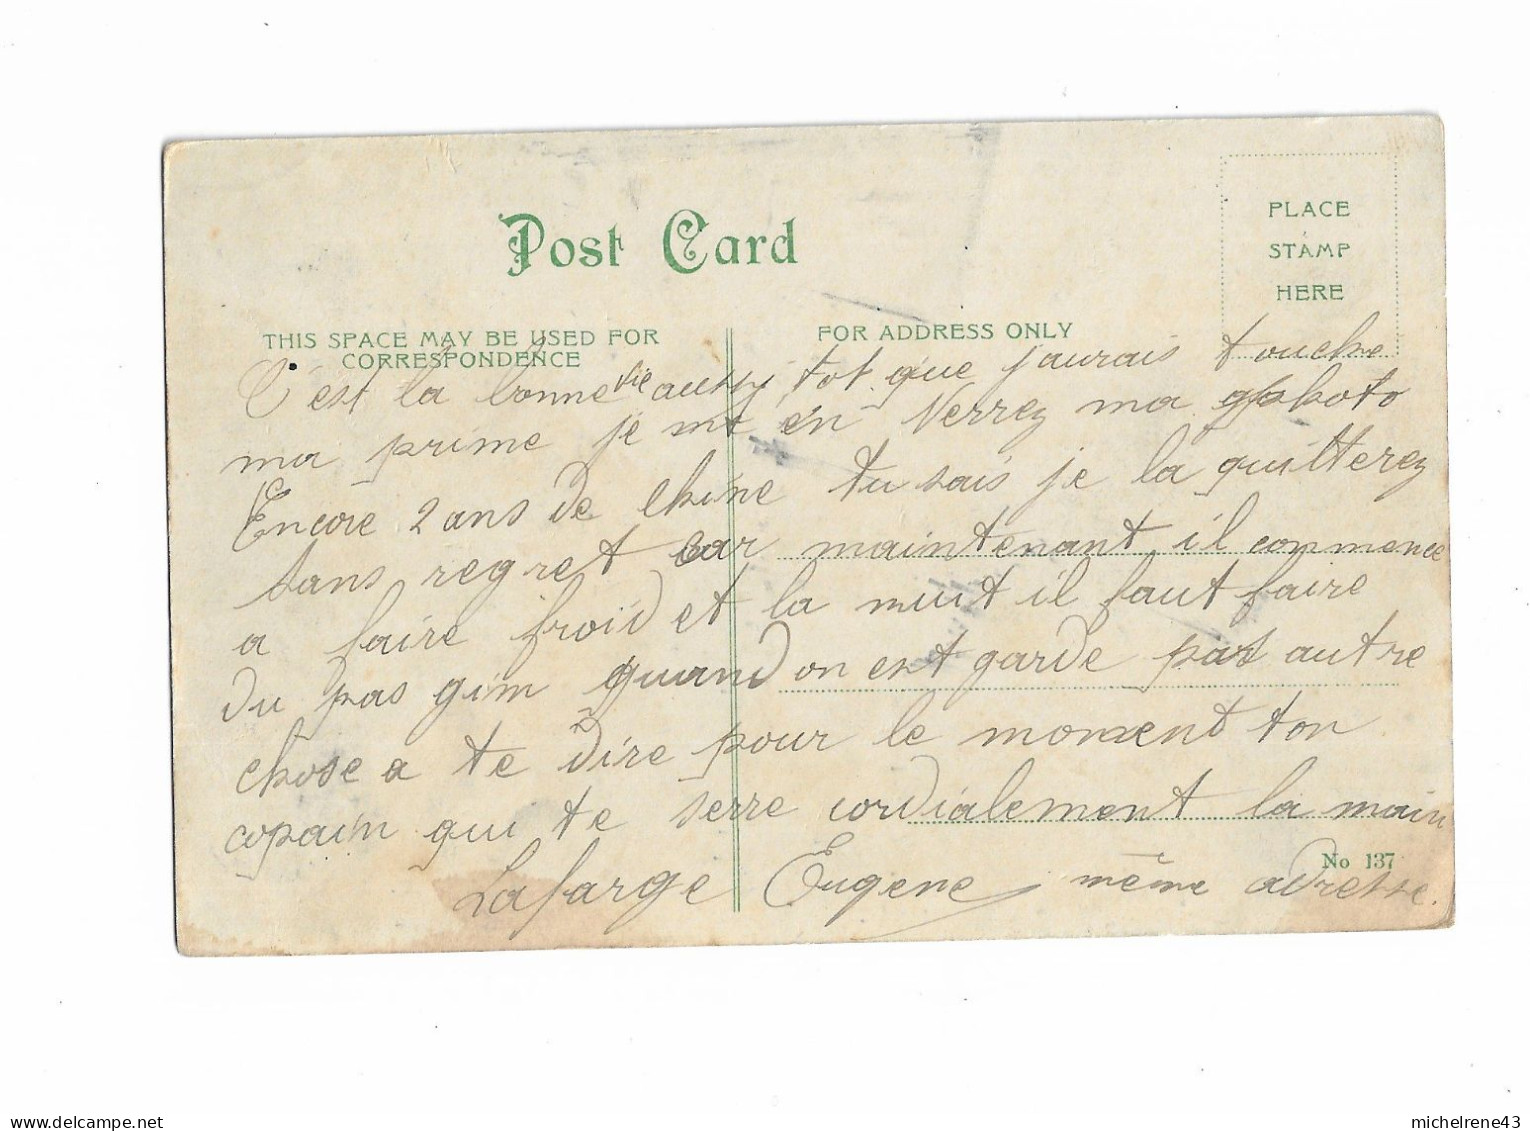 Post Card
PLACE
STAMP
HERE
THIS SPACE MAY BE USED FOR
CORRESPONDENCE
FOR ADDRESS ONLY
C'est la bonne vie aussy, tot que jaurais touche
ma prime je en Verrez ma photo
Encore 2 ans de Chine tu sais je la quitterez
sans regret car maintenant il commence
a faire froid et la nuit il faut faire
du pas gim quand on est garde pas autre
chose a te dire pour le moment ton
copain qui te serre cordialement la main
Lafarge Eugene même adresse.
No 137
michelrene43